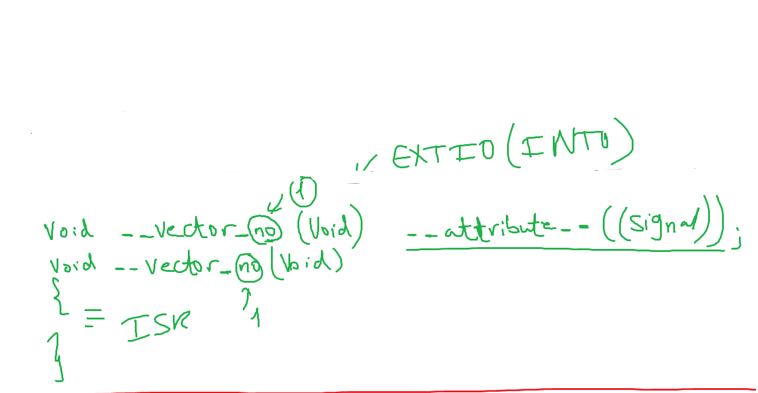 // EXTI0 (INT0)
①
void __vector_no (void) __attribute__((signal));
void __vector_no (void)
{
ISR
1
}